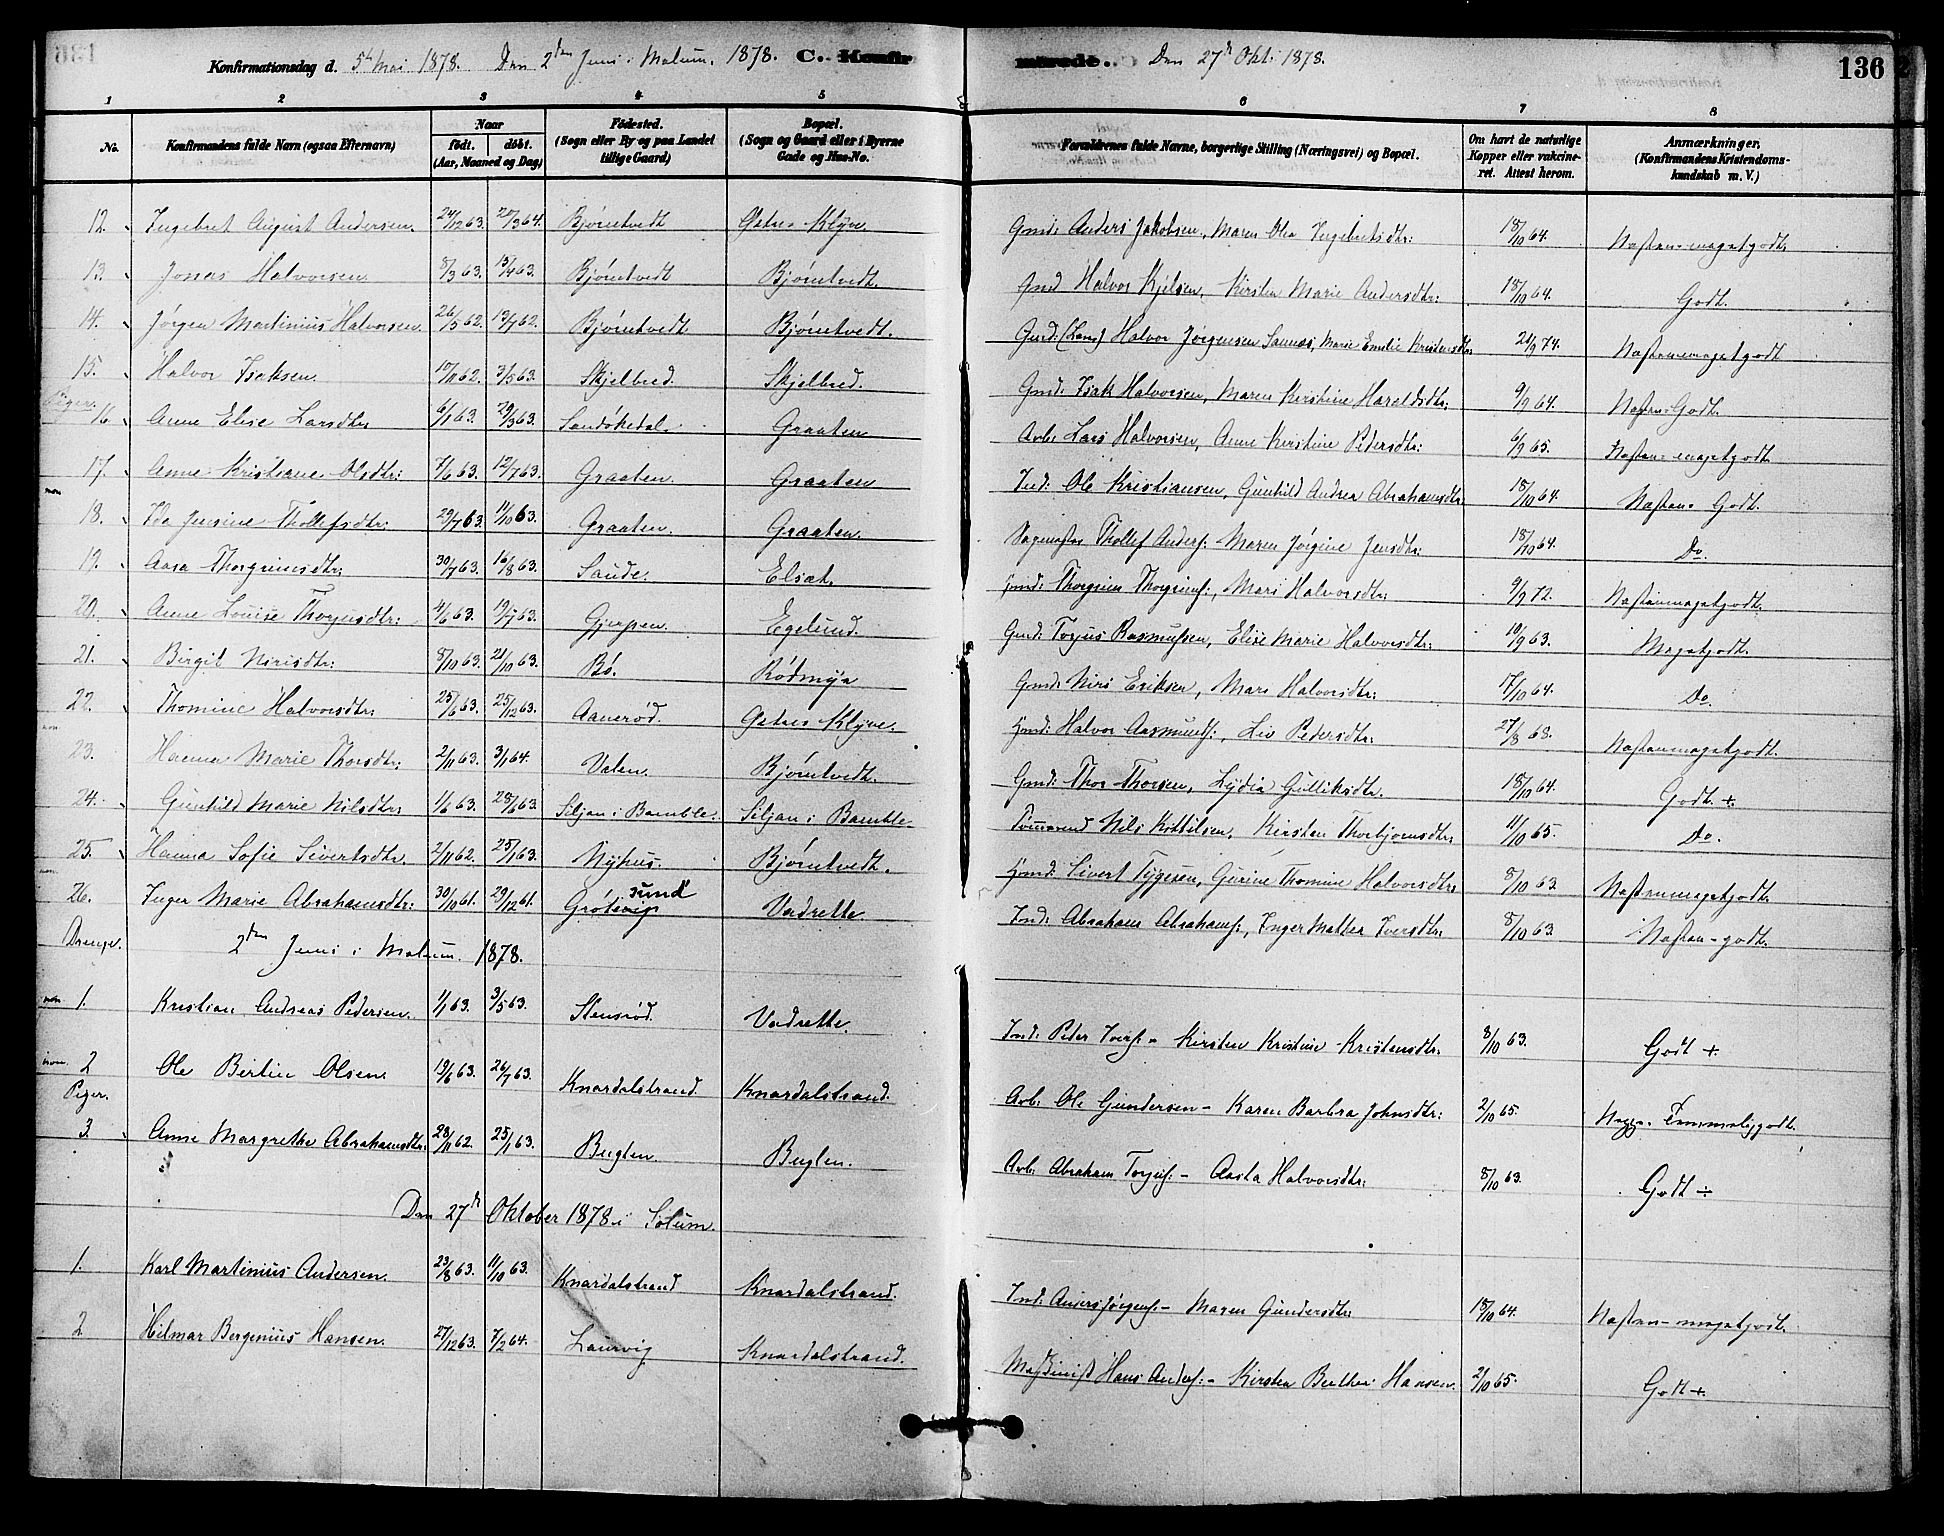 Konfirmationsdag d. 5te Mai 1878. Den 2den Juni i Melum. 1878. C. Konfirmerede. Den 27de Okt. 1878. 136
1 2 3 4 5 6 7 8
No. Konfirmandens fulde Navn (ogsaa Efternavn) Naar født. døbt. (Aar, Maaned og Dag) Fødested. (Sogn eller By og paa Landet tillige Gaard) Bopæl. (Sogn og Gaard eller i Byerne Gade og Hus-No. Forældrenes fulde Navne, borgerlige Stilling (Næringsvei) og Bopæl. Om havt de naturlige Kopper eller vakcineret. Attest herom. Anmærkninger. (Konfirmandens Kristendomskundskab m. V.)
12. Ingebret August Andersen. 24/12 63. 20/3 64. Bjørntvedt Østre Klyve Gmd: Anders Jakobsen, Maren Olea Ingebretsdtr: 18/10 64. Næsten-megetgodt.
13. Jonas Halvorsen 8/3 63. 13/4 63. Bjørntvedt Bjørntvedt. Gmd Halvor Kjelsen, Kirsten Marie Andersdtr: 18/10 64. Godt.
14. Jørgen Martinius Halvorsen 26/5 62. 13/7 62. Bjørntvedt Bjørntvedt. Gmd: Halvor Jørgensen Sannes, Marie Emilie Kristensdtr: 21/9 74. Næstenmegetgodt
15. Halvor Isaksen. 10/11 62. 3/5 63. Skjelbred. Skjelbred. Gmd: Isak Halvorsen, Maren Kirstine Haraldsdtr: 9/9 64. Næsten-Godt.
Piger.
16. Anne Elise Larsdtr 6/1 63. 29/3 63. Sandøkedal. Graaten Arb: Lars Halvorsen, Anne Kirstine Pedersdtr: 6/9 65. Næsten-megetgodt.
17. Anne Kristiane Olsdtr: 7/6 63. 12/7 63. Graaten. Graaten Ind: Ole Kristiansen, Gunhild Andrea Abrahamsdtr: 18/10 64. Næsten-Godt.
18. Ida Jensine Thollefsdtr: 29/7 63. 11/10 63. Graaten. Graaten. Sagmester Thollef Anders: Maren Jørgine Jensdtr: 18/10 64. Do.
19. Aasa Thorgrimsdtr: 30/7 63. 16/8 63. Saude. Elset. Hmd: Thorgrim Thorgrims:, Mari Halvorsdtr: 9/9 72. Næstenmegetgodt.
20. Anne Louise Thorjusdtr: 4/6 63. 19/7 63. Gjerpen. Egelund. Gmd: Torjus Rasmussen, Elise Marie Halvorsdtr: 10/9 63. Megetgodt.
21. Birgit Nirisdtr: 8/10 63. 21/10 63. Bø. Rødmyr Gmd: Niri Eriksen, Mari Halvorsdtr: 17/10 64. Do.
22. Thomine Halvorsdtr. 25/6 63. 25/12 63. Aanerød. Østre Klyve. Hmd: Halvor Aasmunds:, Liv Pedersdtr: 27/8 68. Næstenmegetgodt.
23. Hanna Marie Thorsdtr: 2/11 63. 3/1 64. Valen. Bjørntvedt. Gmd: Thor Thorsen, Lydia Gulliksdtr. 18/10 64. Godt. +
24. Gunhild Marie Nilsdtr: 1/6 63. 28/6 63 Siljan i Bamble. Siljan i Bamble Tømmermd Nils Kittilsen, Kirsten Thorbjørnsdtr: 11/10 65. Do.
25. Hanna Sofie Sivertsdtr. 2/11 62. 25/1 63. Nyhus. Bjørntvedt. Hmd: Sivert Tygesen, Gurine Thomine Halvorsdtr: 8/10 63. Næstenmegetgodt.
26. Inger Marie Abrahamsdtr: 30/10 61. 29/12 61. Grøtsund Vadrette Ind: Abraham Abrahams:, Inger Mathea Iversdtr: 8/10 63. Næsten-godt.
Drenge. 2den Juni i Melum. 1878.
1. Kristian Andreas Pedersen. 1/1 63. 3/5 63. Stensrød. Vadrette. Ind: Peter Ivers: - Kirsten Kristine Kristensdtr: 8/10 63. Godt +
2 Ole Bertin Olsen. 19/6 63. 26/7 63. Knardalstrand. Knardalstrand. Arb: Ole Gundersen - Karen Barbra Johnsdtr: 2/10 65. Temmeliggodt.
Piger.
3. Anne Margrethe Abrahamsdtr: 28/11 62. 25/1 63. Buglen. Buglen. Arb: Abraham Torjus: - Aasta Halvorsdtr: 8/10 63. Godt ÷
Den 27de Oktober 1878 i Solum.
1. Karl Martinius Andersen. 23/8 63. 11/10 63. Knardalstrand Knardalstrand. Ind: Anders Jørgens: - Maren Gundersdtr: 18/10 64. Næsten-megetgodt.
2 Hilmar Bergenius Hansen. 27/12 63. 7/2 64. Laurvig Knardalstrand. Maskinist Hans Anders: - Kirsten Berthea Hansen. 2/10 65. Godt +